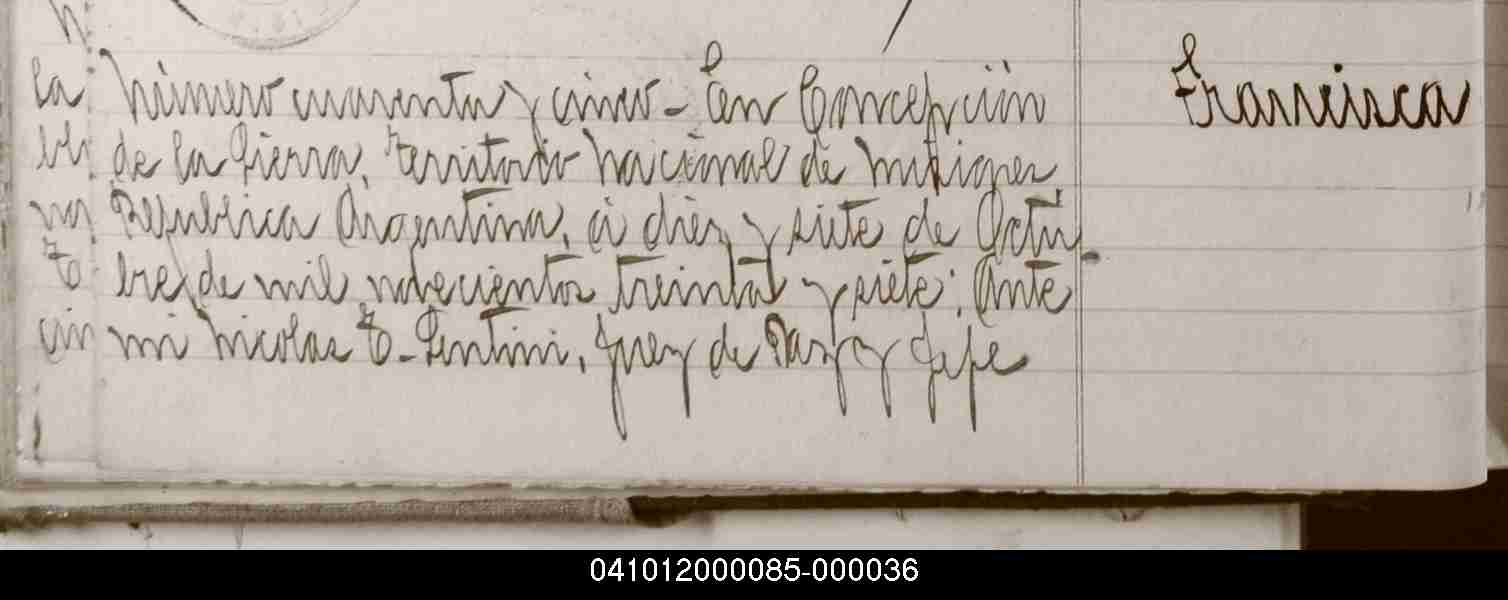 Número cuarenta y cinco - En Concepción
Francisca
de la Sierra, Territorio Nacional de Misiones
República Argentina, á diez y siete de Octu
bre de mil novecientos treinta y siete: Ante
mi Nicolas T. Sentini, Juez de Paz y Jefe
la
to
cin
041012000085-000036